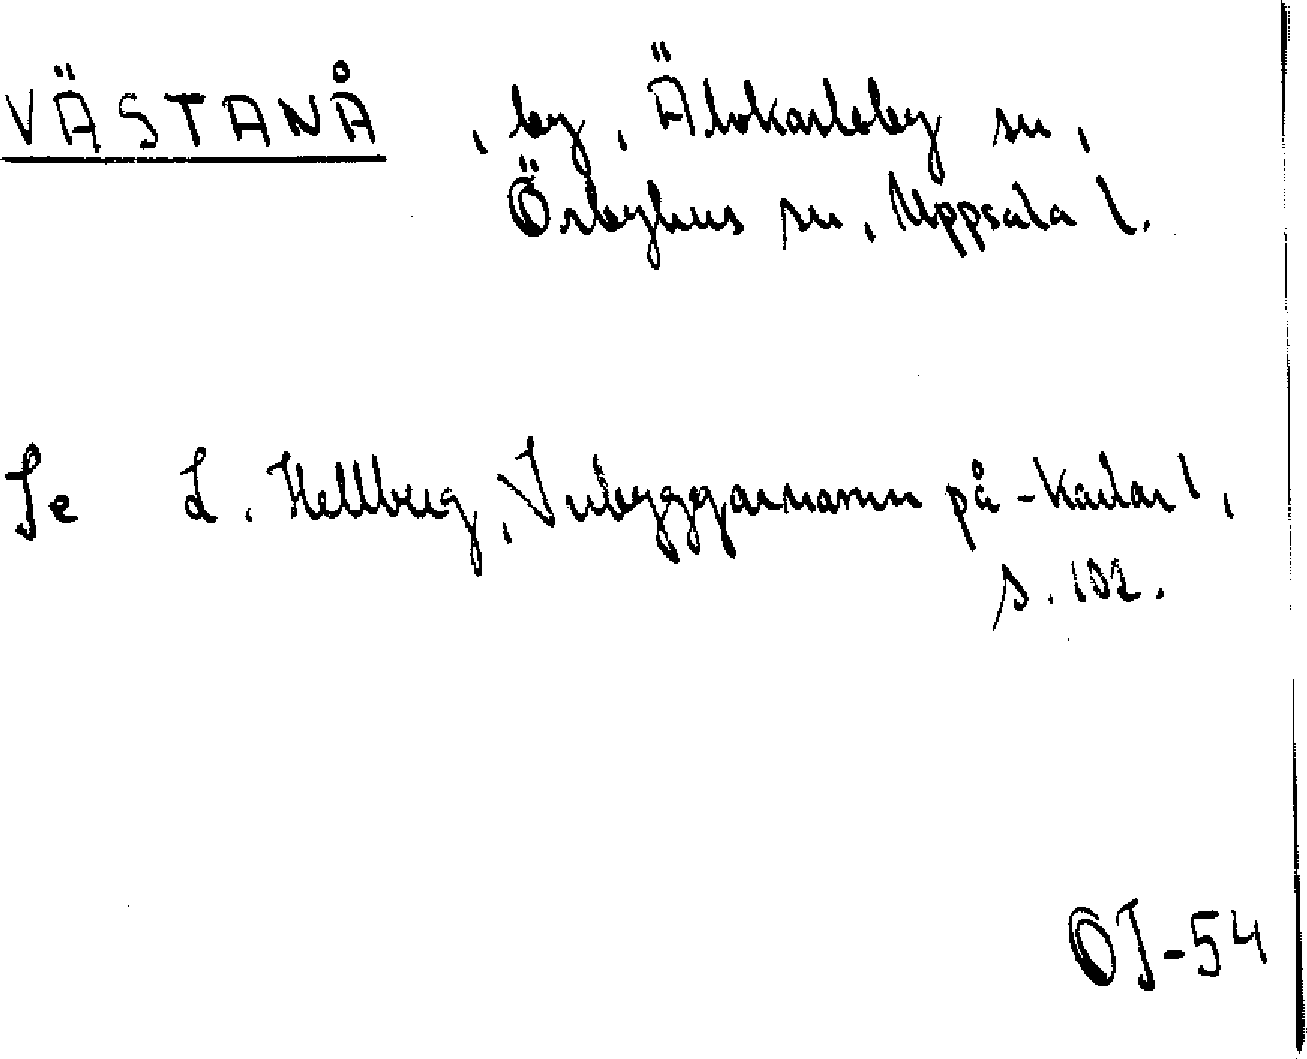 VÄSTANÅ , by, Älvkarleby sn,
Örbyhus sn, Uppsala l.
Se L. Hellberg, Inbyggarnamn på -karlar,
s. 102.
OJ-54